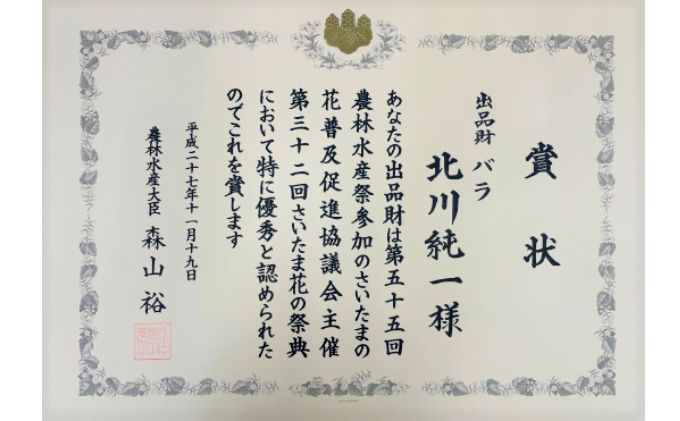 賞状
出品財 バラ
北川純一様
あなたの出品財は第五十五回
農林水産祭参加のさいたまの
花普及促進協議会主催
第三十二回さいたま花の祭典
において特に優秀と認められた
のでこれを賞します
平成二十七年十一月十九日
農林水産大臣 森山裕